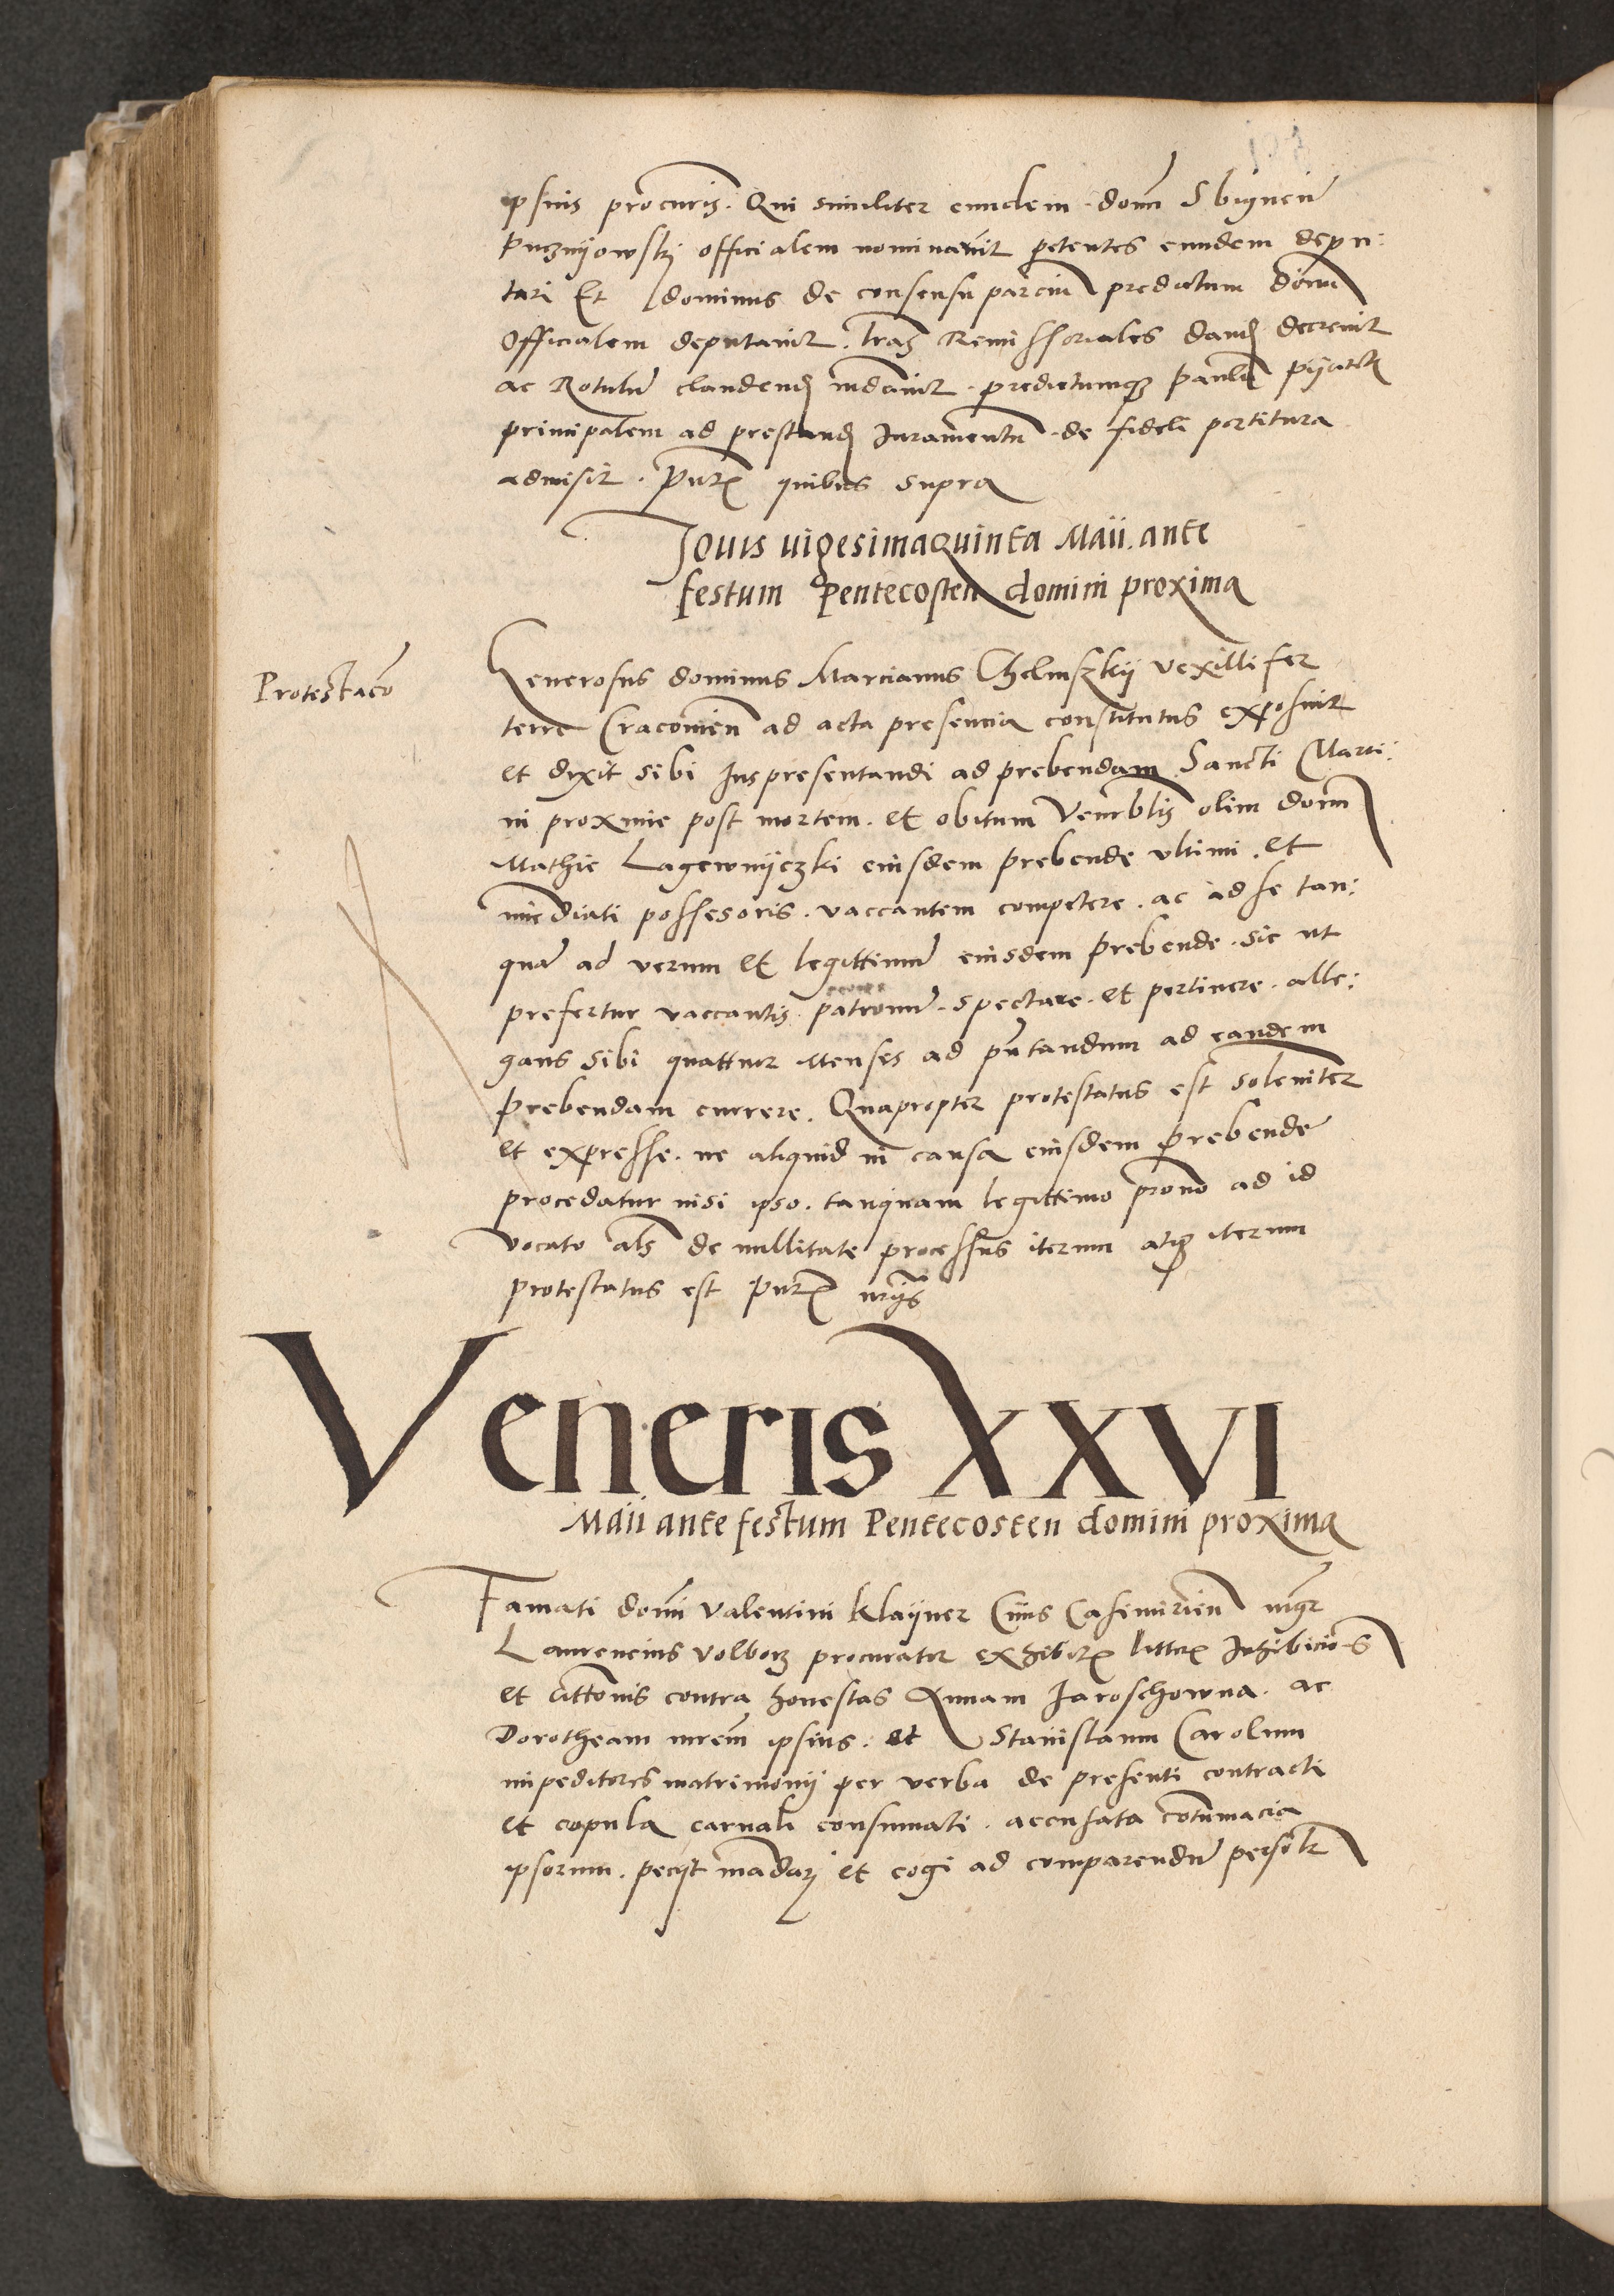 ipsius procuris. Qui similiter eundem. domi Sbigneu
puczniiowskj officialem nominavit petentes eundem depu:
tari Et dominus de consensu parcium predictum dnum
Officialem deputavit. lras Remissoriales dand decrevit
ac Rotulu claudend mdavit. predictumq3 paulu
principalem ad prestand Juramentu de fideli portitura
admisit. pntz quibus supra
Jovis vigesimaquinta Maii. ante
festum Pentecosten domini proxima
Protestaco
Generosus dominus Marcianus Chelmszkij vexillifer
terre Cracovien ad acta presencia constitutus exposuit
et dixit sibi Jus presentandi ad prebendam Sancti Marti:
ni proxime post mortem. et obitum venrblis olim domi
Mathie Lagewnijczki eiusdem prebende ultimi. et
imediati possesoris. vaccantem competere. ac ad se tan:
qua ad verum et legittimu eiusdem prebende. sic ut
prefertur vaccantis patronu. spectare. et pertinere. alle:
gans sibi quattuor Menses ad pntandum ad eandem
prebendam currere. Quapropter protestatus est soleniter
et expresse. ne aliquid in causa eiusdem prebende
procedatur nisi ipso. tanquam legittimo prono ad id
vocato als de nullitate processus iterum atq3 iterum
protestatus est pntz
Veneris XXVI
Maii ante festum Pentecosten domini proxima
Famati domi Valentini Klaijner Civis Casimirien mgr
Laurencius Volborz procurator exhibitz littrz Inhibicios
et cittonis contra honestas Annam Jaroschowna. ac
Dorotheam mrem ipsius. et Stanislaum Carolum
impeditores matrimonij per verba de presenti contracti
et copula carnali consumati. accusata cotumacia
ipsorum. peciit madarj et cogi ad comparendu persolr